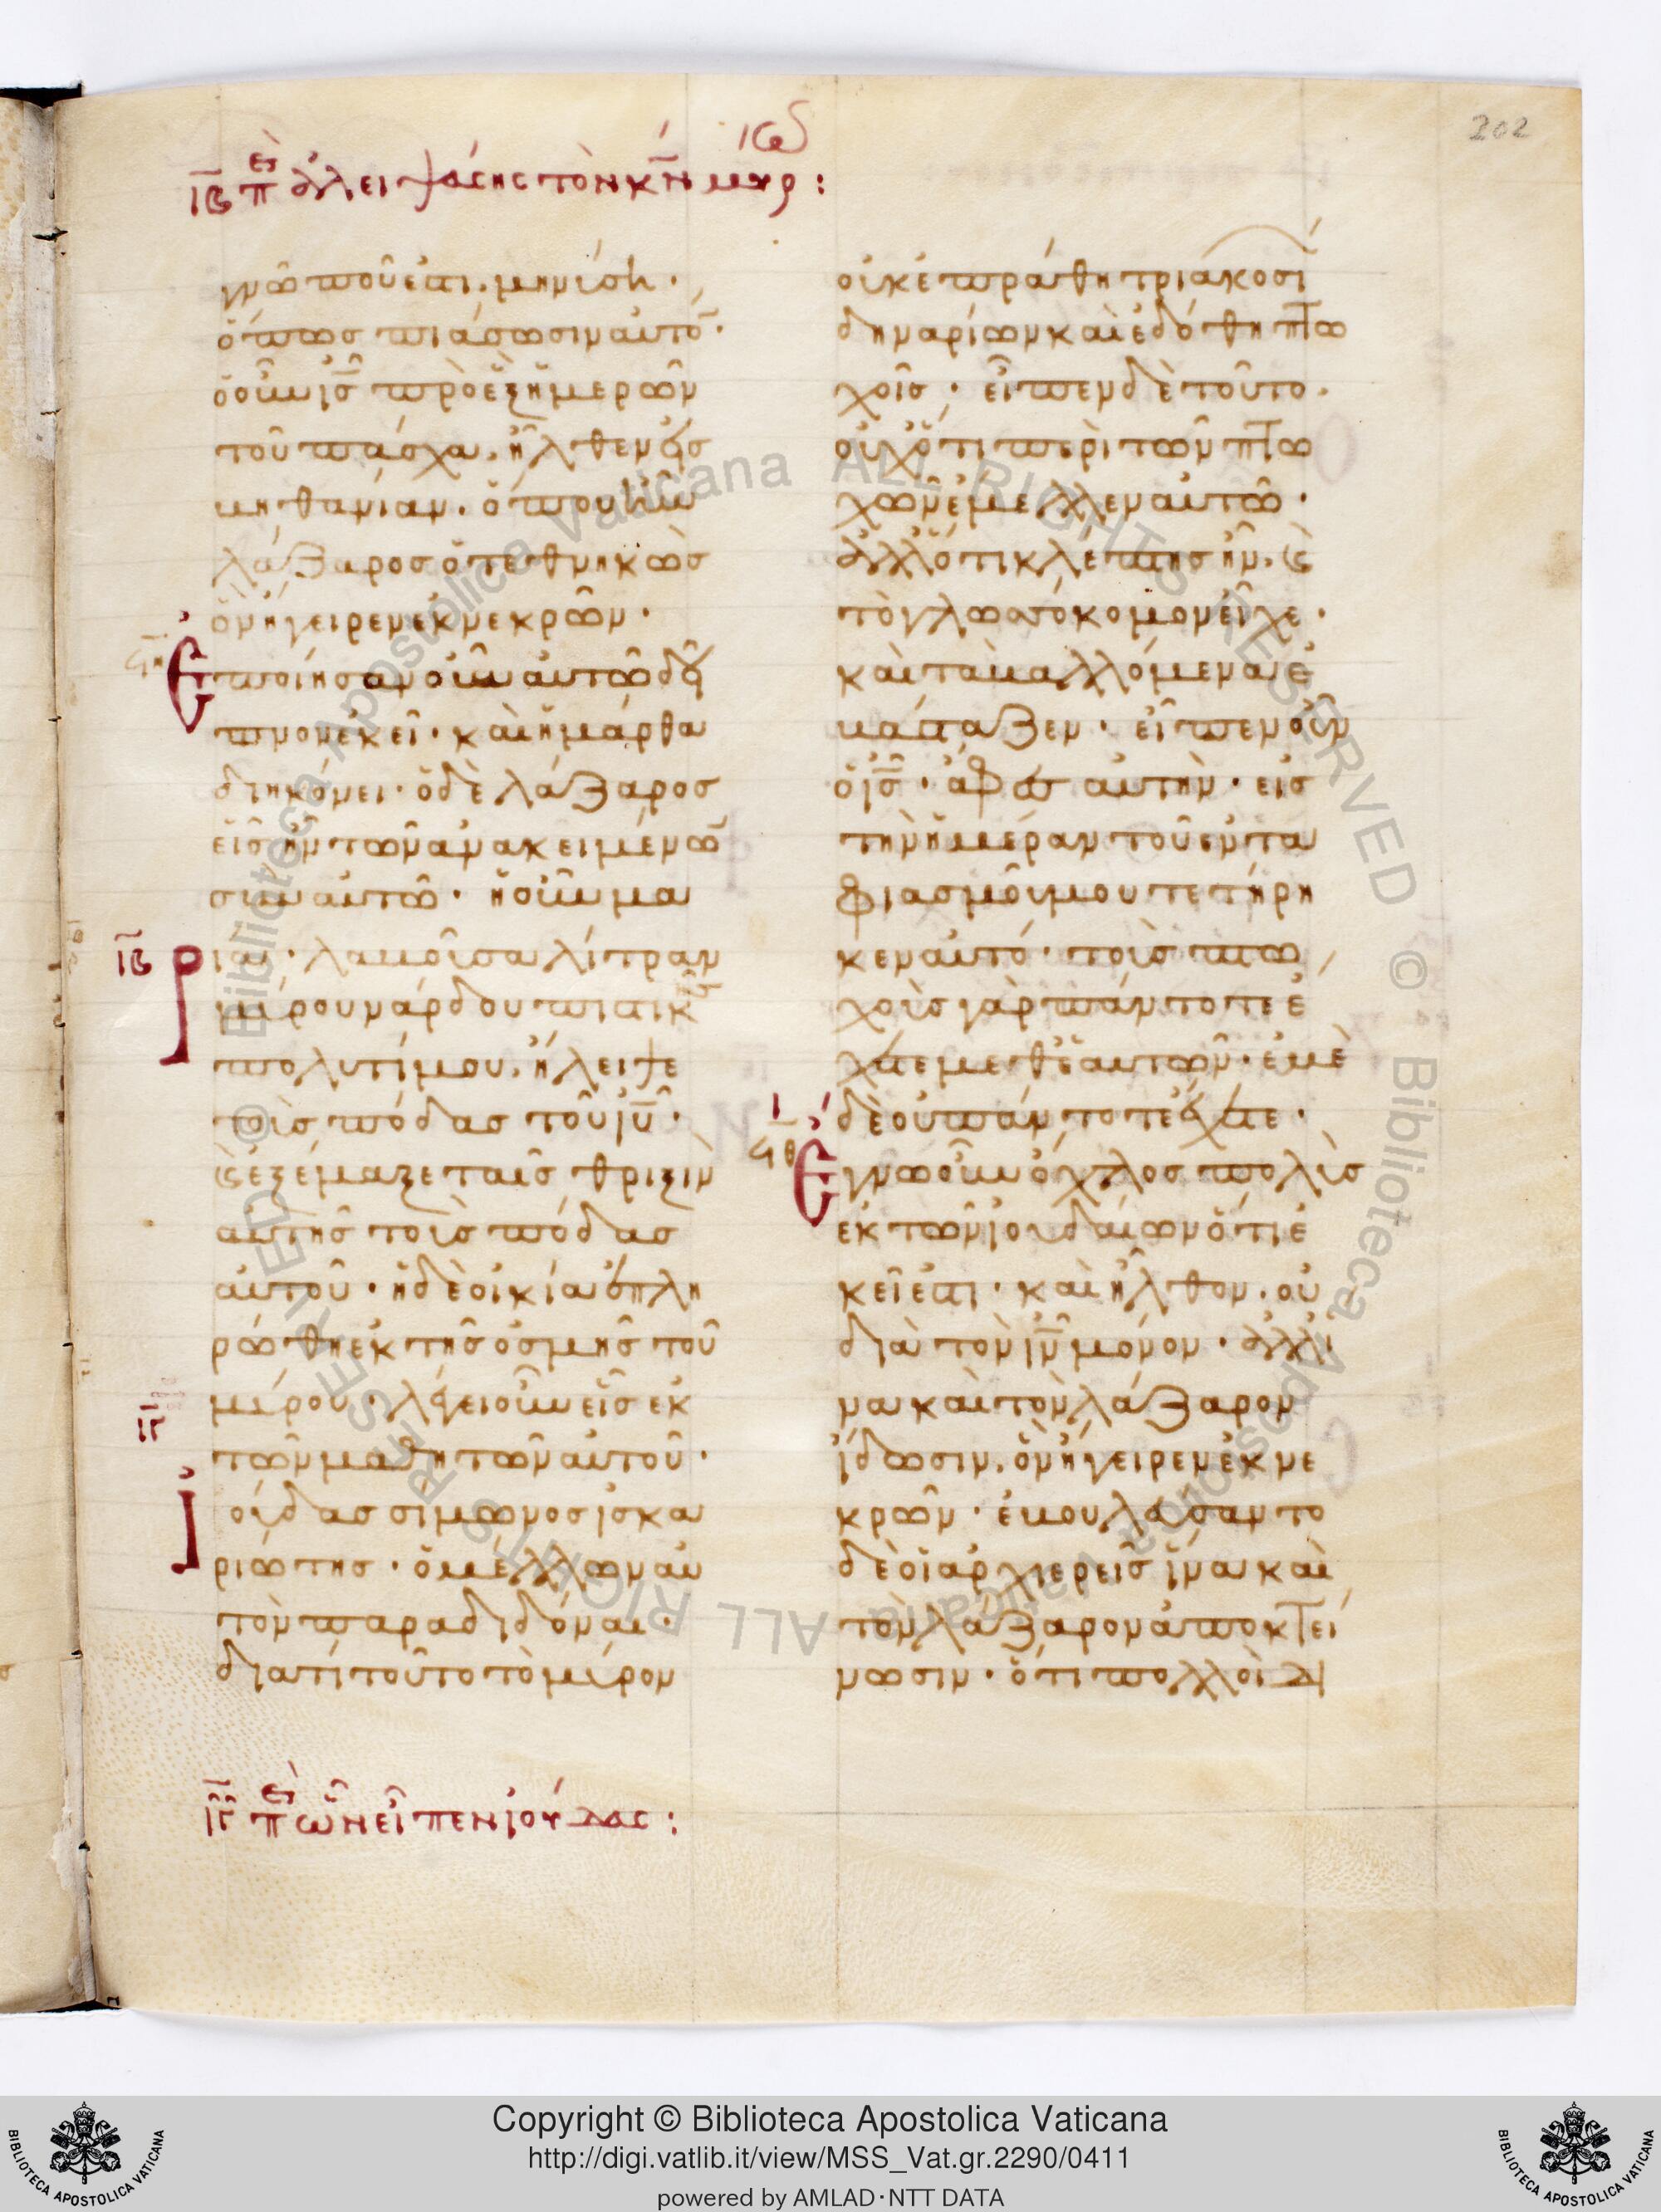 202
ιωδ
ιβ π ἀλειψάσης τὸν κν μύρ :
γνῶ ποῦ ἐστι. μηνύση.
ὅπως πιάσωσιν αὐτο.
ὁ οὖν ις πρὸ ἓξ ἡμερῶν
τοῦ πάσχα. ἦλθεν εἰς
βηθανίαν. ὅπου ἦν
λάζαρος ὁ τεθνηκὼς
ὃν ἤγειρεν ἐκ νεκρῶν.
ϟη
Ἐποίησαν οὖν αὐτῶ δεῖ
πνον ἐκεῖ. καὶ ἡ μάρθα
διηκόνει. ὁ δὲ λάζαρος
εἷς ἦν τῶν ἀνακειμένω
σὺν αὐτῶ. ἡ οὖν μα
ιβ
ρία. λαβοῦσα λίτραν
μύρου νάρδου πιστικ
πολυτίμου. ἤλειψε
τοὺς πόδας τοῦ ιυ.
καὶ ἐξέμαξε ταῖς θριξὶν
αὐτῆς τοὺς πόδας
αὐτοῦ. ἡ δὲ οἰκία ἐπλη
ρώθη ἐκ τῆς ὀσμῆς τοῦ
μύρου. λέγει οὖν εἷς ἐκ
ιγ
τῶν μαθητῶν αὐτοῦ.
Ἰούδας σίμωνος ἰσκα
ριώτης. ὁ μέλλων αὐ
τὸν παραδιδόναι.
διατί τοῦτο τὸ μύρον
οὐκ ἐπράθη τριακοσί
δηναρίων καὶ ἐδόθη πτω
χοῖς. εἶπεν δὲ τοῦτο.
οὐχ ὅτι περὶ τῶν πτω
χῶν ἔμελλεν αὐτῶ.
ἀλλ ὅτι κλέπτης ἦν. καὶ
τὸ γλωσσόκομον εἶχε.
καὶ τὰ βαλλόμενα ἐ
βάσταζεν. εἶπεν οὖν
ὁ ις. ἄφες αὐτὴν. εἰς
τὴν ἡμέραν τοῦ ἐντα
φιασμοῦ μου τετήρη
κεν αὐτό. τοὺς πτω
χοὺς γὰρ πάντοτε ἔ
χετε μεθ ἑαυτῶν. ἐμὲ
δὲ οὐ πάντοτε ἔχετε.
ϟθ
Ἔγνω οὖν ὄχλος πολὺς
ἐκ τῶν ἰουδαίων ὅτι ἐ
κεῖ ἐστι. καὶ ἦλθον. οὐ
διὰ τὸν ιν μόνον. ἀλλ ἵ
να καὶ τὸν λάζαρον
ἴδωσιν. ὃν ἤγειρεν ἐκ νε
κρῶν. ἐβουλεύσαντο
δὲ οἱ ἀρχιερεῖς ἵνα καὶ
τὸν λάζαρον ἀποκτεί
νωσιν. ὅτι πολλοὶ δι
ιγ π ὧν εἶπεν ἰούδας :
Copyright © Biblioteca Apostolica Vaticana
http://digi.vatlib.it/view/MSS_Vat.gr.2290/0411
powered by AMLAD·NTT DATA
BIBLIOTECA APOSTOLICA VATICANA
BIBLIOTECA APOSTOLICA VATICANA